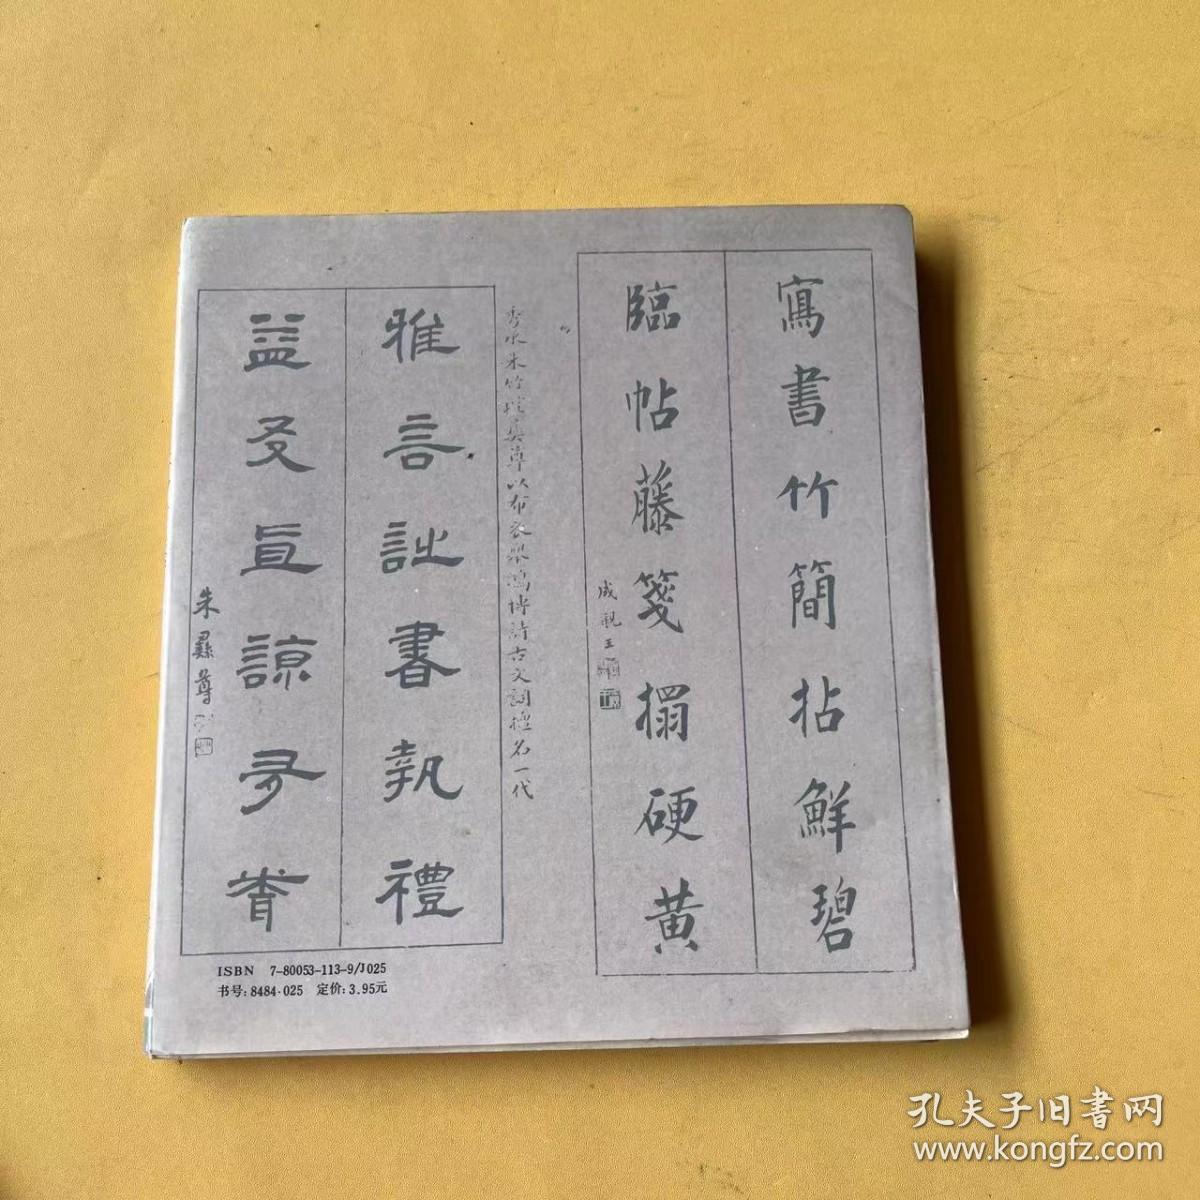 寫書竹簡拈鮮碧
臨帖藤箋搨硬黄
成親王
秀水朱竹垞彝尊以布衣舉鴻博詩古文詞擅名一代
雅言訨書執禮
益友直諒多聞
朱彝尊
ISBN 7-80053-113-9/J025
书号:8484·025 定价:3.95元
孔夫子旧書网
www.kongfz.com